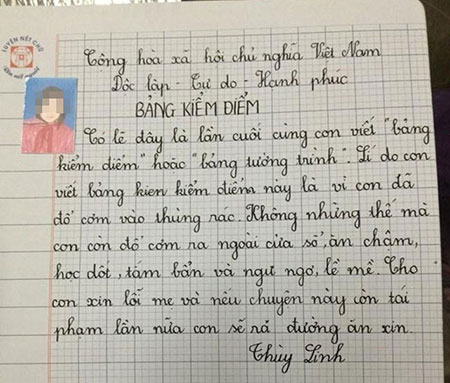 LUYỆN NÉT CHỮ
RÈN NẾT NGƯỜI
Cộng hòa xã hội chủ nghĩa Việt Nam
Dôc lập - Tự do - Hạnh phúc
BẢNG KIỂM ĐIỂM
Có lẽ đây là lần cuối cùng con viết "bảng
kiểm điểm" hoặc "bảng tường trình". Lí do con
viết bảng kien kiểm điểm này là vì con đã
đổ cơm vào thùng rác. Không những thế mà
con còn đổ cơm ra ngoài cửa sổ, ăn chậm,
học dốt, tắm bẩn và ngu ngơ, lề mề. Cho
con xin lỗi mẹ và nếu chuyện này còn tái
phạm lần nữa con sẽ rả đường ăn xin.
Thùy Linh